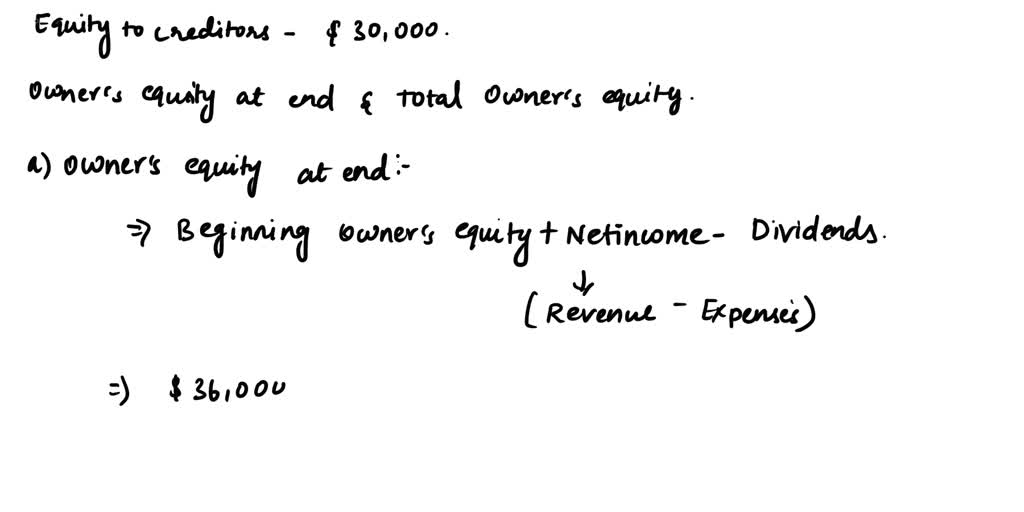 Equity to creditors - $ 30,000.
Owner's equity at end & Total Owner's equity.
a) Owner's equity at end :-
⇒ Beginning owner's equity + Netincome - Dividends.
↓
(Revenue - Expenses)
⇒ $ 36,000